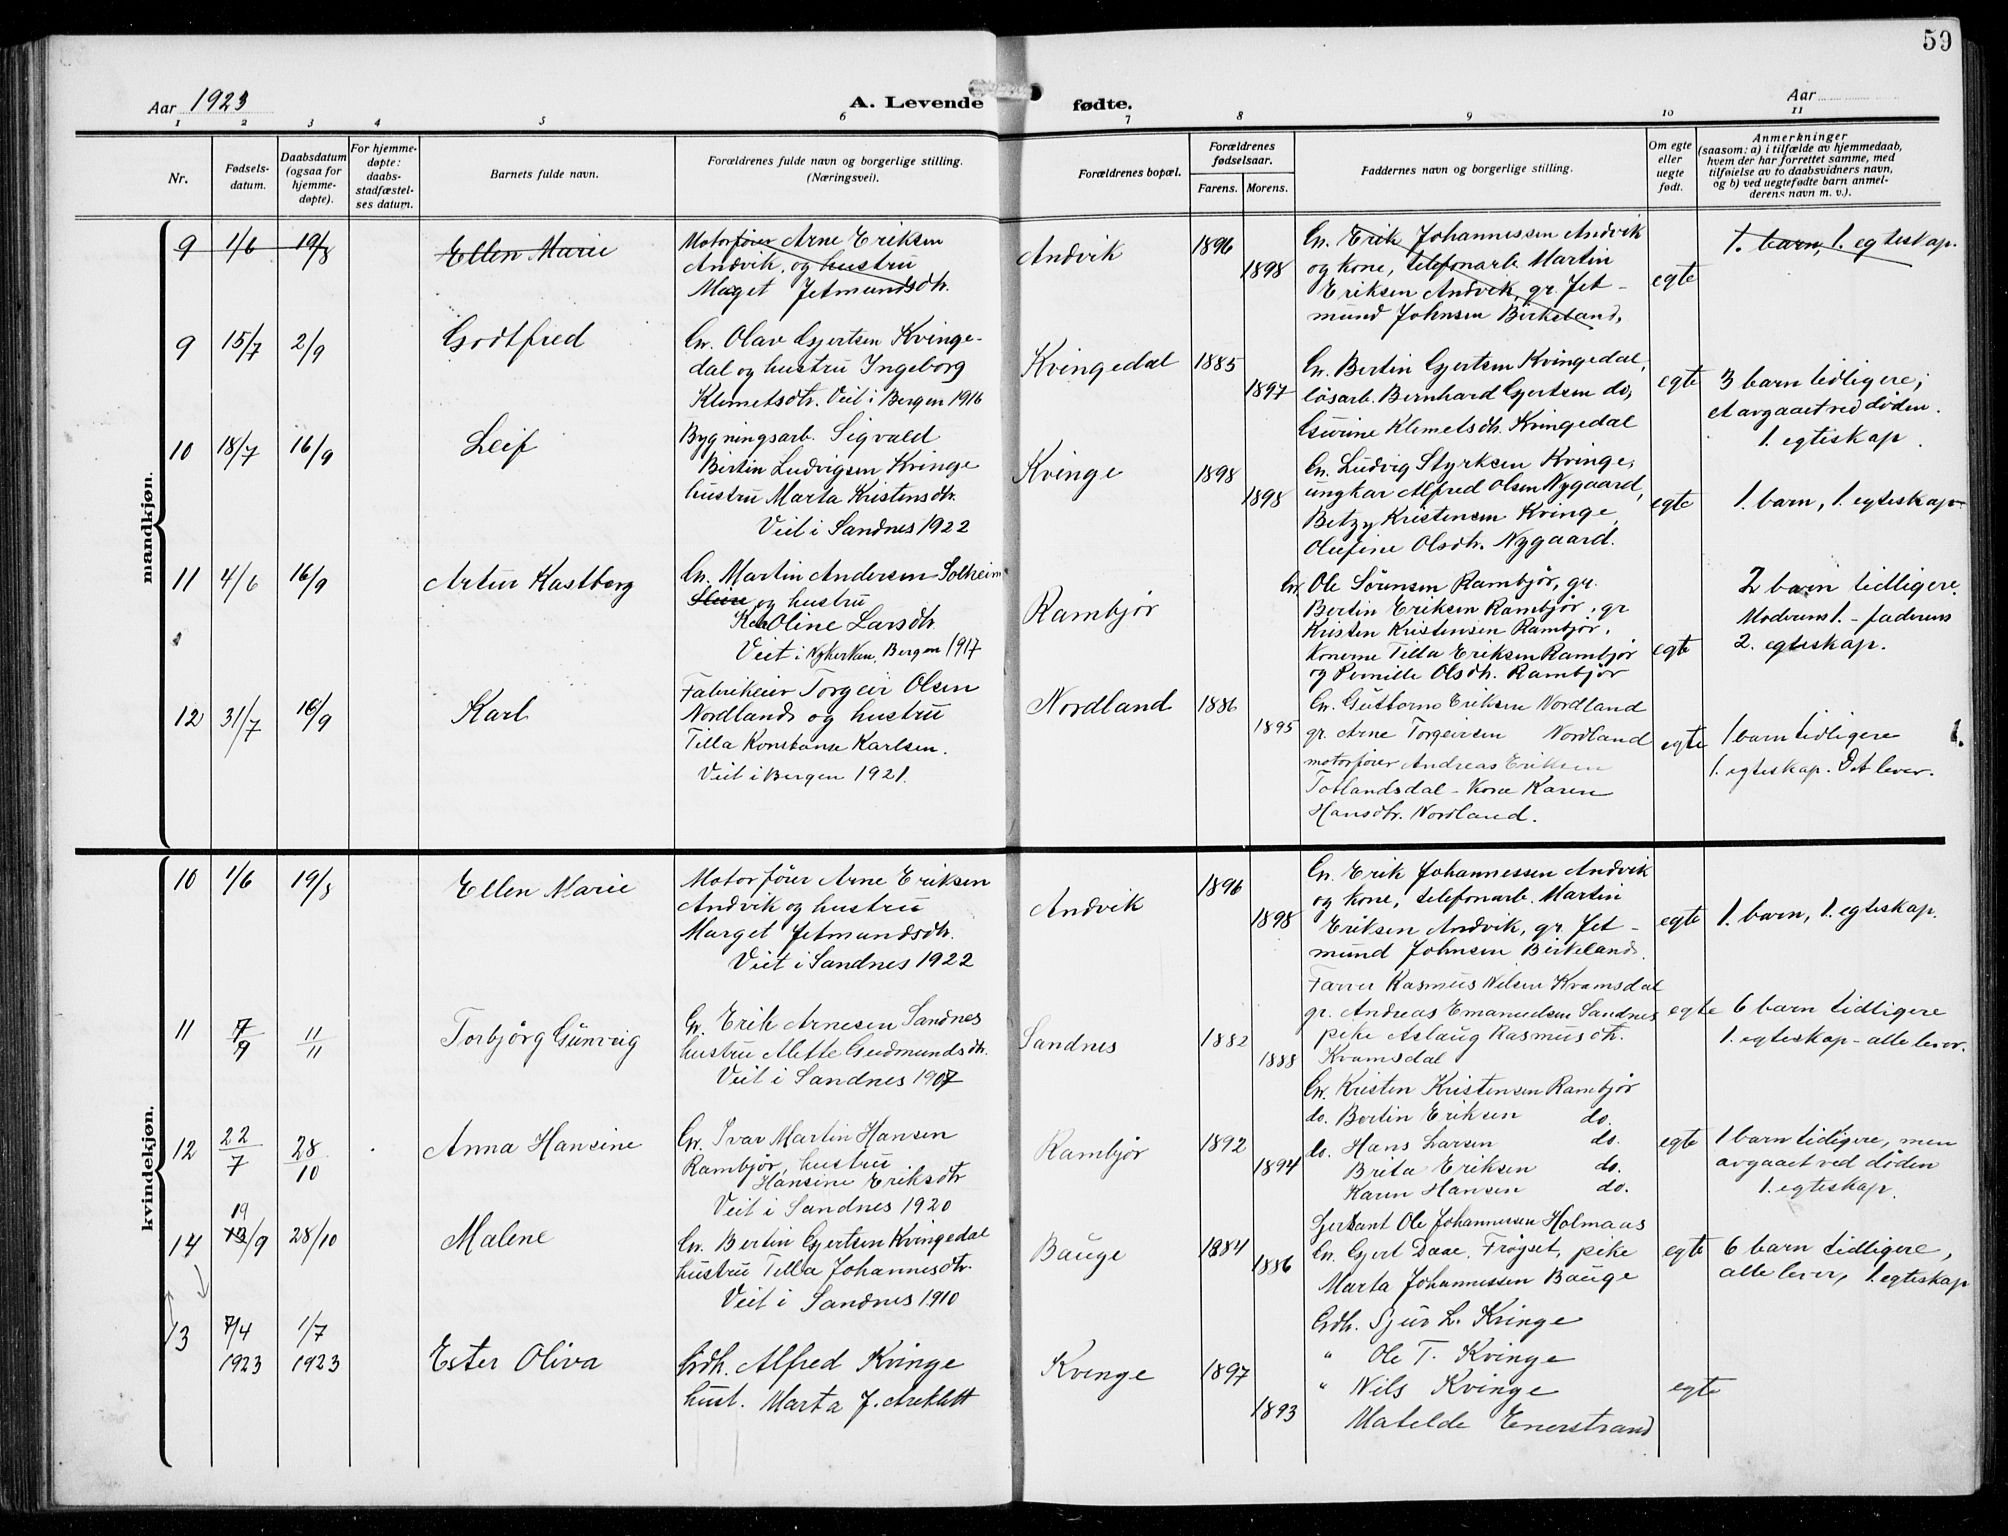 59
Aar 1923
A. Levende fødte.
Aar
1 2 3 4 5 6 7 8 9 10 11
Nr.
Fødsels-
datum.
Daabsdatum
(ogsaa for
hjemme-
døpte).
For hjemme-
døpte:
daabs-
stadfæstel-
ses datum.
Barnets fulde navn.
Forældrenes fulde navn og borgerlige stilling.
(Næringsvei).
Forældrenes bopæl.
Forældrenes
fødselsaar.
Farens. Morens.
Faddernes navn og borgerlige stilling.
Om egte
eller
uegte
født.
Anmerkninger
(saasom: a) i tilfælde av hjemmedaab,
hvem der har forrettet samme, med
tilføielse av to daabsvidners navn,
og b) ved uegtefødte barn anmel-
derens navn m. v.).
mandkjøn.
9 1/6 19/8 Ellen Marie
Motorfører Arne Eriksen
Andvik, og hustru
Maget Jetmundsdtr.
Andvik 1896 1898
Gr. Erik Johannessen Andvik
og kone, telefonarb. Martin
Eriksen Andvik, gr. Jet-
mund Johnsen Birkeland,
egte
1. barn, 1. egteskap.
9 15/7 2/9 Godtfred
Gr. Olav Gjertsen Kvinge-
dal og hustru Ingeborg
Klemetsdtr. Veit i Bergen 1916
Kvingedal 1885 1897
Gr. Bertin Gjertsen Kvingedal,
løsarb. Bernhard Gjertsen do,
Gurine Klemetsdtr. Kvingedal
egte
3 barn tidligere;
et avgaaet ved døden.
1. egteskap.
10 18/7 16/9 Leif
Bygningsarb. Sigvald
Bertin Ludvigsen Kvinge
hustru Marta Kristensdtr.
Veit i Sandnes 1922
Kvinge 1898 1898
Gr. Ludvig Styrksen Kvinge,
ungkar Alfred Olsen Nygaard,
Betzy Kristensen Kvinge,
Olufine Olsdtr. Nygaard.
egte
1. barn, 1. egteskap.
11 4/6 16/9 Artur Kastberg
Gr. Martin Andersen Solheim
og hustru
Karoline Larsdtr.
Veit i Nykirken, Bergen 1917
Rambjør
Gr. Ole Sørensen Rambjør, gr.
Bertin Eriksen Rambjør, gr
Kristen Kristensen Rambjør.
Konerne Tilla Eriksen Rambjør
og Pernille Olsdtr. Rambjør
egte
2 barn tidligere.
Moderens 1. - faderens
2. egteskap.
12 31/7 16/9 Karl
Fabrikeier Torgeir Olsen
Nordland og hustru
Tilla Konstanse Karlsen.
Veit i Bergen 1921.
Nordland 1886 1895
Gr. Guttorm Eriksen Nordland
gr. Arne Torgeirsen Nordland
motorfører Andreas Eriksen
Totlandsdal - Kone Karen
Hansdtr. Nordland.
egte
1 barn tidligere 1.
1. egteskap. Det lever.
kvindekjøn.
10 1/6 19/8 Ellen Marie
Motorfører Arne Eriksen
Andvik og hustru
Marget Jetmundsdtr.
Veit i Sandnes 1922
Andvik 1896 1898
Gr. Erik Johannessen Andvik
og kone, telefonarb. Martin
Eriksen Andvik, gr. Jet-
mund Johnsen Birkeland.
egte
1. barn, 1. egteskap.
11 7/9 11/11 Torbjørg Gunvig
Gr. Erik Arnesen Sandnes
hustru Alette Gudmundsdtr.
Veit i Sandnes 1907
Sandnes 1882 1888
Farver Rasmus Nilsen Kvamsdal
gr. Andreas Emanuelsen Sandnes
pike Aslaug Rasmusdtr.
Kvamsdal
egte
6 barn tidligere
1. egteskap - alle lever.
12 22/7 28/10 Anna Hansine
Gr. Ivar Martin Hansen
Rambjør, hustru
Hansine Eriksdtr
Veit i Sandnes 1920
Rambjør 1892 1894
Gr. Kristen Kristensen Rambjør
do. Bertin Eriksen do.
do. Hans Larsen do.
Brita Eriksen do.
Karen Hansen do.
egte
1 barn tidligere, men
avgaaet ved døden
1. egteskap.
14 19/9 28/10 Malene
Gr. Bertin Gjertsen Kvingedal
hustru Tilla Johannesdtr.
Veit i Sandnes 1910
Bauge 1884 1886
Sjersant Ole Johannesen Holmaas
Gr. Gjert Daae, Frøyset, pike
Marta Johannessen Bauge
egte
6 barn tidligere,
alle lever, 1. egteskap
13 7/4 1923 1/7 1923 Ester Oliva
Grdh. Alfred Kvinge
hust. Marta J. Areklett
Kvinge 1897 1893
Grdh. Sjur L. Kvinge
" Ole T. Kvinge
" Nils Kvinge
Matelde Enerstrand
egte